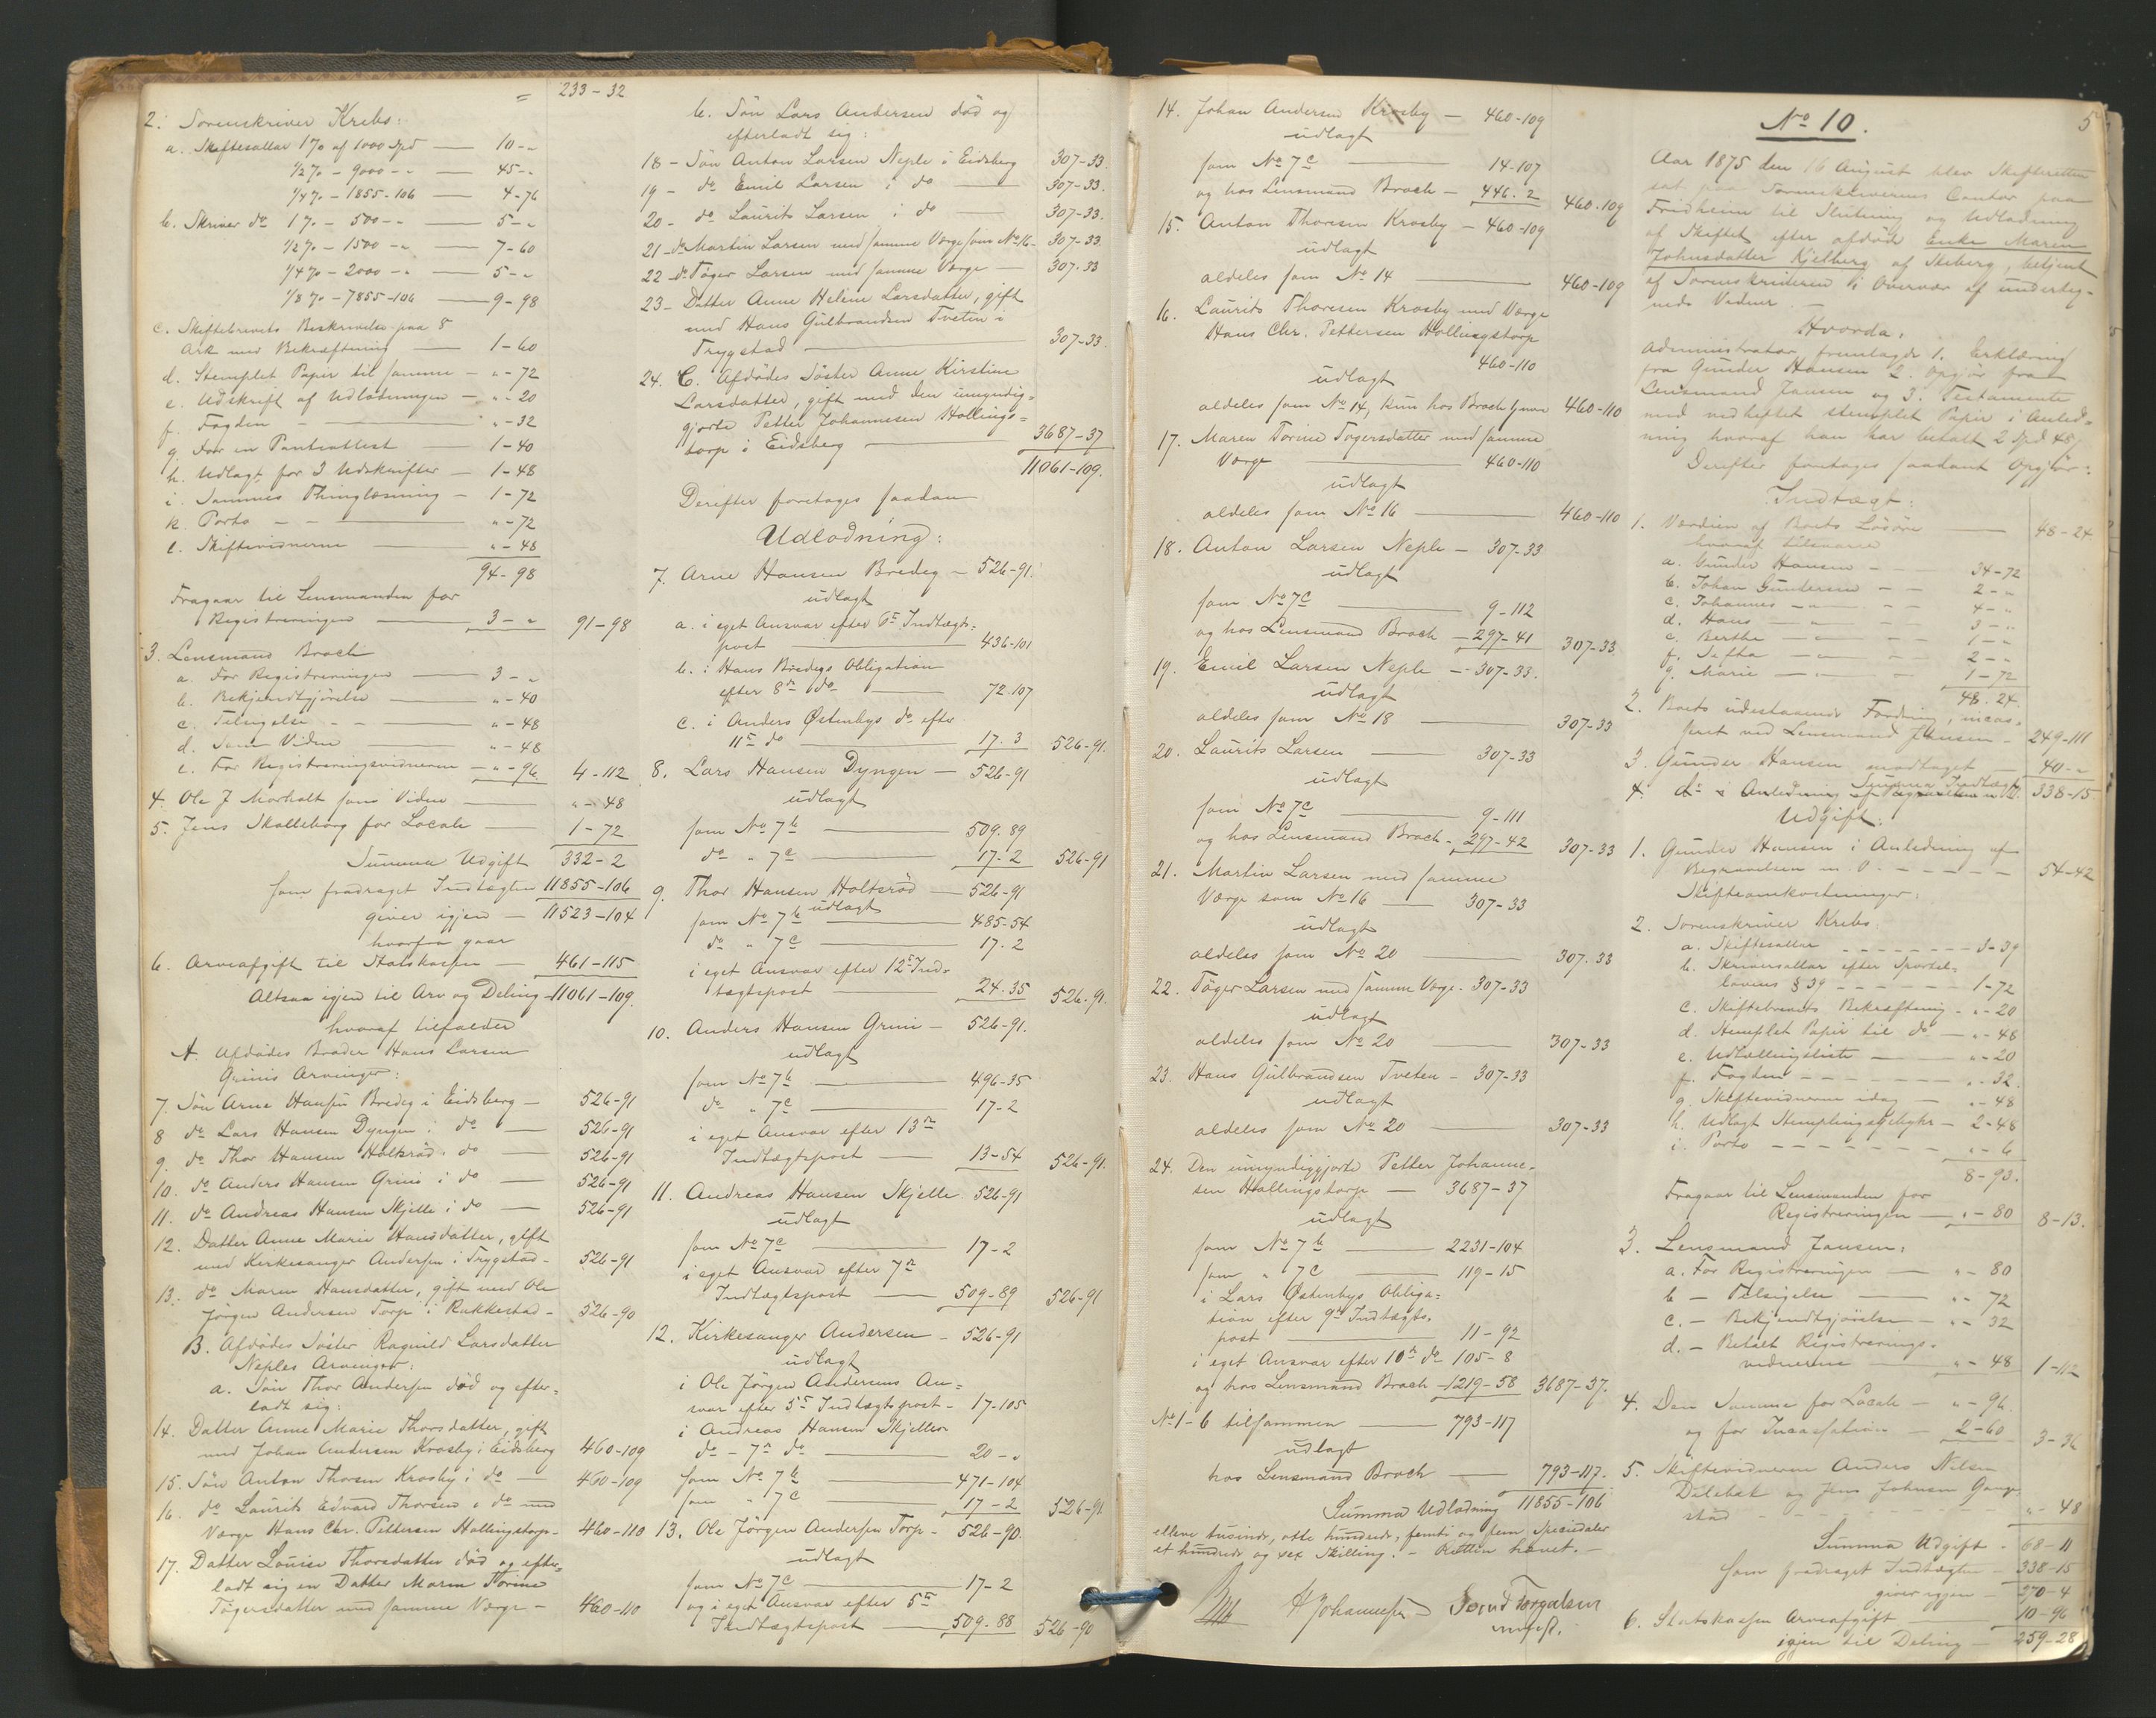 = 233-32
2. Sorenskriver Krebs:
a. Skiftesallar 1 % af 1000 Spd — 10 - "
1/2 % - 9000 - " — 45 - "
1/4 % - 1855-106 — 4-76
b. Skriver do 1 % - 500 - " — 5 - "
1/2 % - 1500 - " — 7-60
1/4 % - 2000 - " — 5 - "
1/8 % - 7855-106 — 9-98
c. Skiftebrevets Beskrivelse paa 8
Ark med Bekræftning — 1-60
d. Stemplet Papir til samme — " - 72
e. Udskrift af Udlodningen — " - 20
f. Fogden — " - 32
g. For en Panteattest — 1-40
h. Udlagt for 3 Udskrifter — 1-48
i. Sammes Thinglæsning — 1-72
k. Porto — " - 72
l. Skiftevidnerne — " - 48
94-98
Fragaar til Lensmanden for
Registreringen — 3 - " 91-98
3. Lensmand Broch
a. For Registreringen — 3 - "
b. Bekjendtgjørelse — " - 40
c. Tilsigelse — " - 48
d. Som Vidne — " - 48
e. For Registreringsvidnerne — " - 96 4-112
4. Ole J Morholt som Vidne — " - 48
5. Jens Skalleborg for Locale — 1-72
Summa Udgift 332-2
som fradraget Indtægten 11855-106
giver igjen — 11523-104
hvorfra gaar
6. Arveafgift til Statskassen — 461-115
Altsaa igjen til Arv og Deling — 11061-109.
hvoraf tilfalder
A. Afdødes Broder Hans Larsen
Grinis Arvinger:
7. Søn Arne Hansen Bredeg i Eidsberg — 526-91
8 do Lars Hansen Dyngen i do — 526-91
9. do Thor Hansen Holtsrød i do — 526-91
10. do Anders Hansen Grini i do — 526-91
11. do Andreas Hansen Skjelle i do — 526-91
12. Datter Anne Marie Hansdatter, gift
med Kirkesanger Andersen i Trygstad — 526-91
13. do Maren Hansdatter, gift med Ole
Jørgen Andersen Torp i Rakkestad — 526-90
B. Afdødes Søster Ragnild Larsdatter
Neples Arvinger:
a. Søn Thor Andersen død og efter-
ladt sig:
14. Datter Anne Marie Thorsdatter, gift
med Johan Andersen Krosby i Eidsberg 460-109
15. Søn Anton Thorsen Krosby i do — 460-109
16. do Laurits Edvard Thorsen i do med
Værge Hans Chr. Pettersen Hollingstorp — 460-110
17. Datter Louise Thorsdatter død og efter-
ladt sig en Datter Maren Torine
Tøgersdatter med samme Værge — 460-110
b. Søn Lars Andersen død og
efterladt sig:
18 - Søn Anton Larsen Neple i Eidsberg 307-33.
19 - do Emil Larsen i do — 307-33.
20 - do Laurits Larsen i do — 307-33.
21 - do Martin Larsen med samme Værge som No 16 - 307-33.
22 - do Tøger Larsen med samme Værge — 307-33
23 - Datter Anne Helene Larsdatter, gift
med Hans Gulbrandsen Tveten i
Trygstad — 307-33.
24. C. Afdødes Søster Anne Kirstine
Larsdatter, gift med den umyndig-
gjorte Petter Johannesen Hollings-
torp i Eidsberg — 3687-37
11061-109.
Derefter foretages saadan
Udlodning:
7. Arne Hansen Bredeg — 526-91.
udlagt
a. i eget Ansvar efter 6te Indtægts-
post — 436-101
b. i Hans Bredegs Obligation
efter 8de do — 72.107
c. i Anders Østenbys do efter
11te do — 17.3 526-91.
8. Lars Hansen Dyngen — 526-91
udlagt
som No 7b — 509.89
do " 7c — 17-2 526-91
9. Thor Hansen Holtsrød — 526-91
udlagt
som No 7b — 485-54
do " 7c — 17.2
i eget Ansvar efter 12te Ind-
tægtspost — 24.35 526-91.
10. Anders Hansen Grini — 526-91.
udlagt
som No 7b — 496-35
do " 7c — 17-2
i eget Ansvar efter 13de
Indtægtspost — 13-54 526-91.
11. Andreas Hansen Skjelle 526-91
udlagt
som No 7c — 17-2
i eget Ansvar efter 7de
Indtægtspost — 509-89 526-91
12. Kirkesanger Andersen — 526-91
udlagt
i Ole Jørgen Andersens An-
svar efter 5te Indtægtspost — 17-105
i Andreas Hansen Skjelles
do - 7de do — 20 - "
som No 7b — 471-104
som " 7c — 17-2 526-91
13. Ole Jørgen Andersen Torp — 526-90.
udlagt
som No 7c — 17-2
og i eget Ansvar efter 5te
Indtægtspost — 509-88 526-90
14. Johan Andersen Krosby — 460-109
udlagt
som No 7c — 14-107
og hos Lensmand Broch — 446.2 460.109
15. Anton Thoresen Krosby — 460-109
udlagt
aldeles som No 14 — 460-109
16. Laurits Thoresen Krosby med Værge
Hans Chr. Pettersen Hollingstorp
460-110
udlagt
aldeles som No 14, kun hos Broch 460-110
17. Maren Torine Togersdatter med samme
Værge — 460-110
udlagt
aldeles som No 16 — 460-110
18. Anton Larsen Neple — 307-33
udlagt
som No 7c — 9-112
og hos Lensmand Broch — 297-41 307-33.
19. Emil Larsen Neple — 307-33.
udlagt
aldeles som No 18 — 307-33
20. Laurits Larsen — 307-33
udlagt
som No 7c — 9-111
og hos Lensmand Broch — 297-42 307-33
21. Martin Larsen med samme
Værge som No 16 — 307-33
udlagt
aldeles som No 20 — 307.33
22. Tøger Larsen med samme Værge - 307-33
udlagt
aldeles som No 20 — 307-33
23. Hans Gulbrandsen Tveten — 307-33
udlagt
aldeles som No 20 — 307-33
24. Den umyndiggjorte Petter Johanne-
sen Hollingstorp — 3687-37
udlagt
som No 7b — 2231-104
som " 7c — 119-15
i Lars Østenbys Obliga-
tion efter 9de Indtægts-
post — 11-92
i eget Ansvar efter 10de do 105-8
og hos Lensmand Broch — 1219-58 3687-37.
No 1-6 tilsammen — 793-117
udlagt
hos Lensmand Broch — 793-117.
Summa Udlodning 11855-106
elleve tusinde, otte hundrede, femti og fem Speciedaler
et hundrede og sex Skilling. - Retten hævet. -
A Johannesen Svend Torgalsen
5
No 10.
Aar 1875 den 16 August blev Skifteretten
sat paa Sorenskriverens Contor paa
Fridheim til Slutning og Udlodning
af Skiftet efter afdøde Enke Maren
Johnsdatter Kjelberg af Skiberg, betjent
af Sorenskriveren i Overvær af underteg-
nede Vidner. -
Hvorda,
Administrator fremlagde 1. Erklæring
fra Gunder Hansen 2. Opgjør fra
Lensmand Jansen og 3. Testamente
med vedheftet stemplet Papir i Anled-
ning hvoraf han har betalt 2 Spd 48 s
Derefter foretages saadant Opgjør:
Indtægt:
1. Værdien af Boets Løsøre — 48-24
hvoraf tilsvarer
a. Gunder Hansen — 34-72
b. Johan Gundersen — 2 - "
c. Johannes - " — 4 - "
d. Hans - " — 3 - "
e. Berthe - " — 1 - "
f. Sefha - " — 2 - "
g. Marie - " — 1-72
48.24.
2. Boets udestaaende Fordring, incas-
seret ved Lensmand Jansen — 249-111
3. Gunder Hansen modtaget — 40 - "
4. do i Anledning af
Summa Indtægt 338-15
Udgift:
1. Gunder Hansen i Anledning af
Begravelsen m. v. — 54-42
Skifteomkostninger:
2. Sorenskriver Krebs
a. Skiftesallar — 3-39
b. Skriversallar efter Sportel-
lovens § 39 — 1-72
c. Skiftebrevets Bekræftning — " - 20
d. Stemplet Papir til do — " - 48
e. Udtællingsliste — " - 20
f. Fogden — " - 32.
g. Skiftevidnerne idag — " - 48
h. Udlagt Stemplingsgebyhr — 2-48
i. Porto — " - 6
8-93.
Fragaar til Lensmanden for
Registreringen — " - 80 8-13.
3. Lensmand Jansen:
a. For Registreringen — " - 80
b - Tilsigelse — " - 72
c. - Bekjendtgjørelse — " - 32
d. - Betalt Registrerings-
vidnerne — " - 48 1-112
4. Den Samme for Locale — " - 96.
og for Incassation — 2-60 3-36
5. Skiftevidnerne Anders Nilsen
Dilebæk og Jens Johnsen Gange-
stad — " - 48
Summa Udgift - 68-11
som fradraget Indtægten — 338-15
giver igjen — 270-4
6. Statskassen Arveafgift — 10-96
igjen til Deling — 259-28